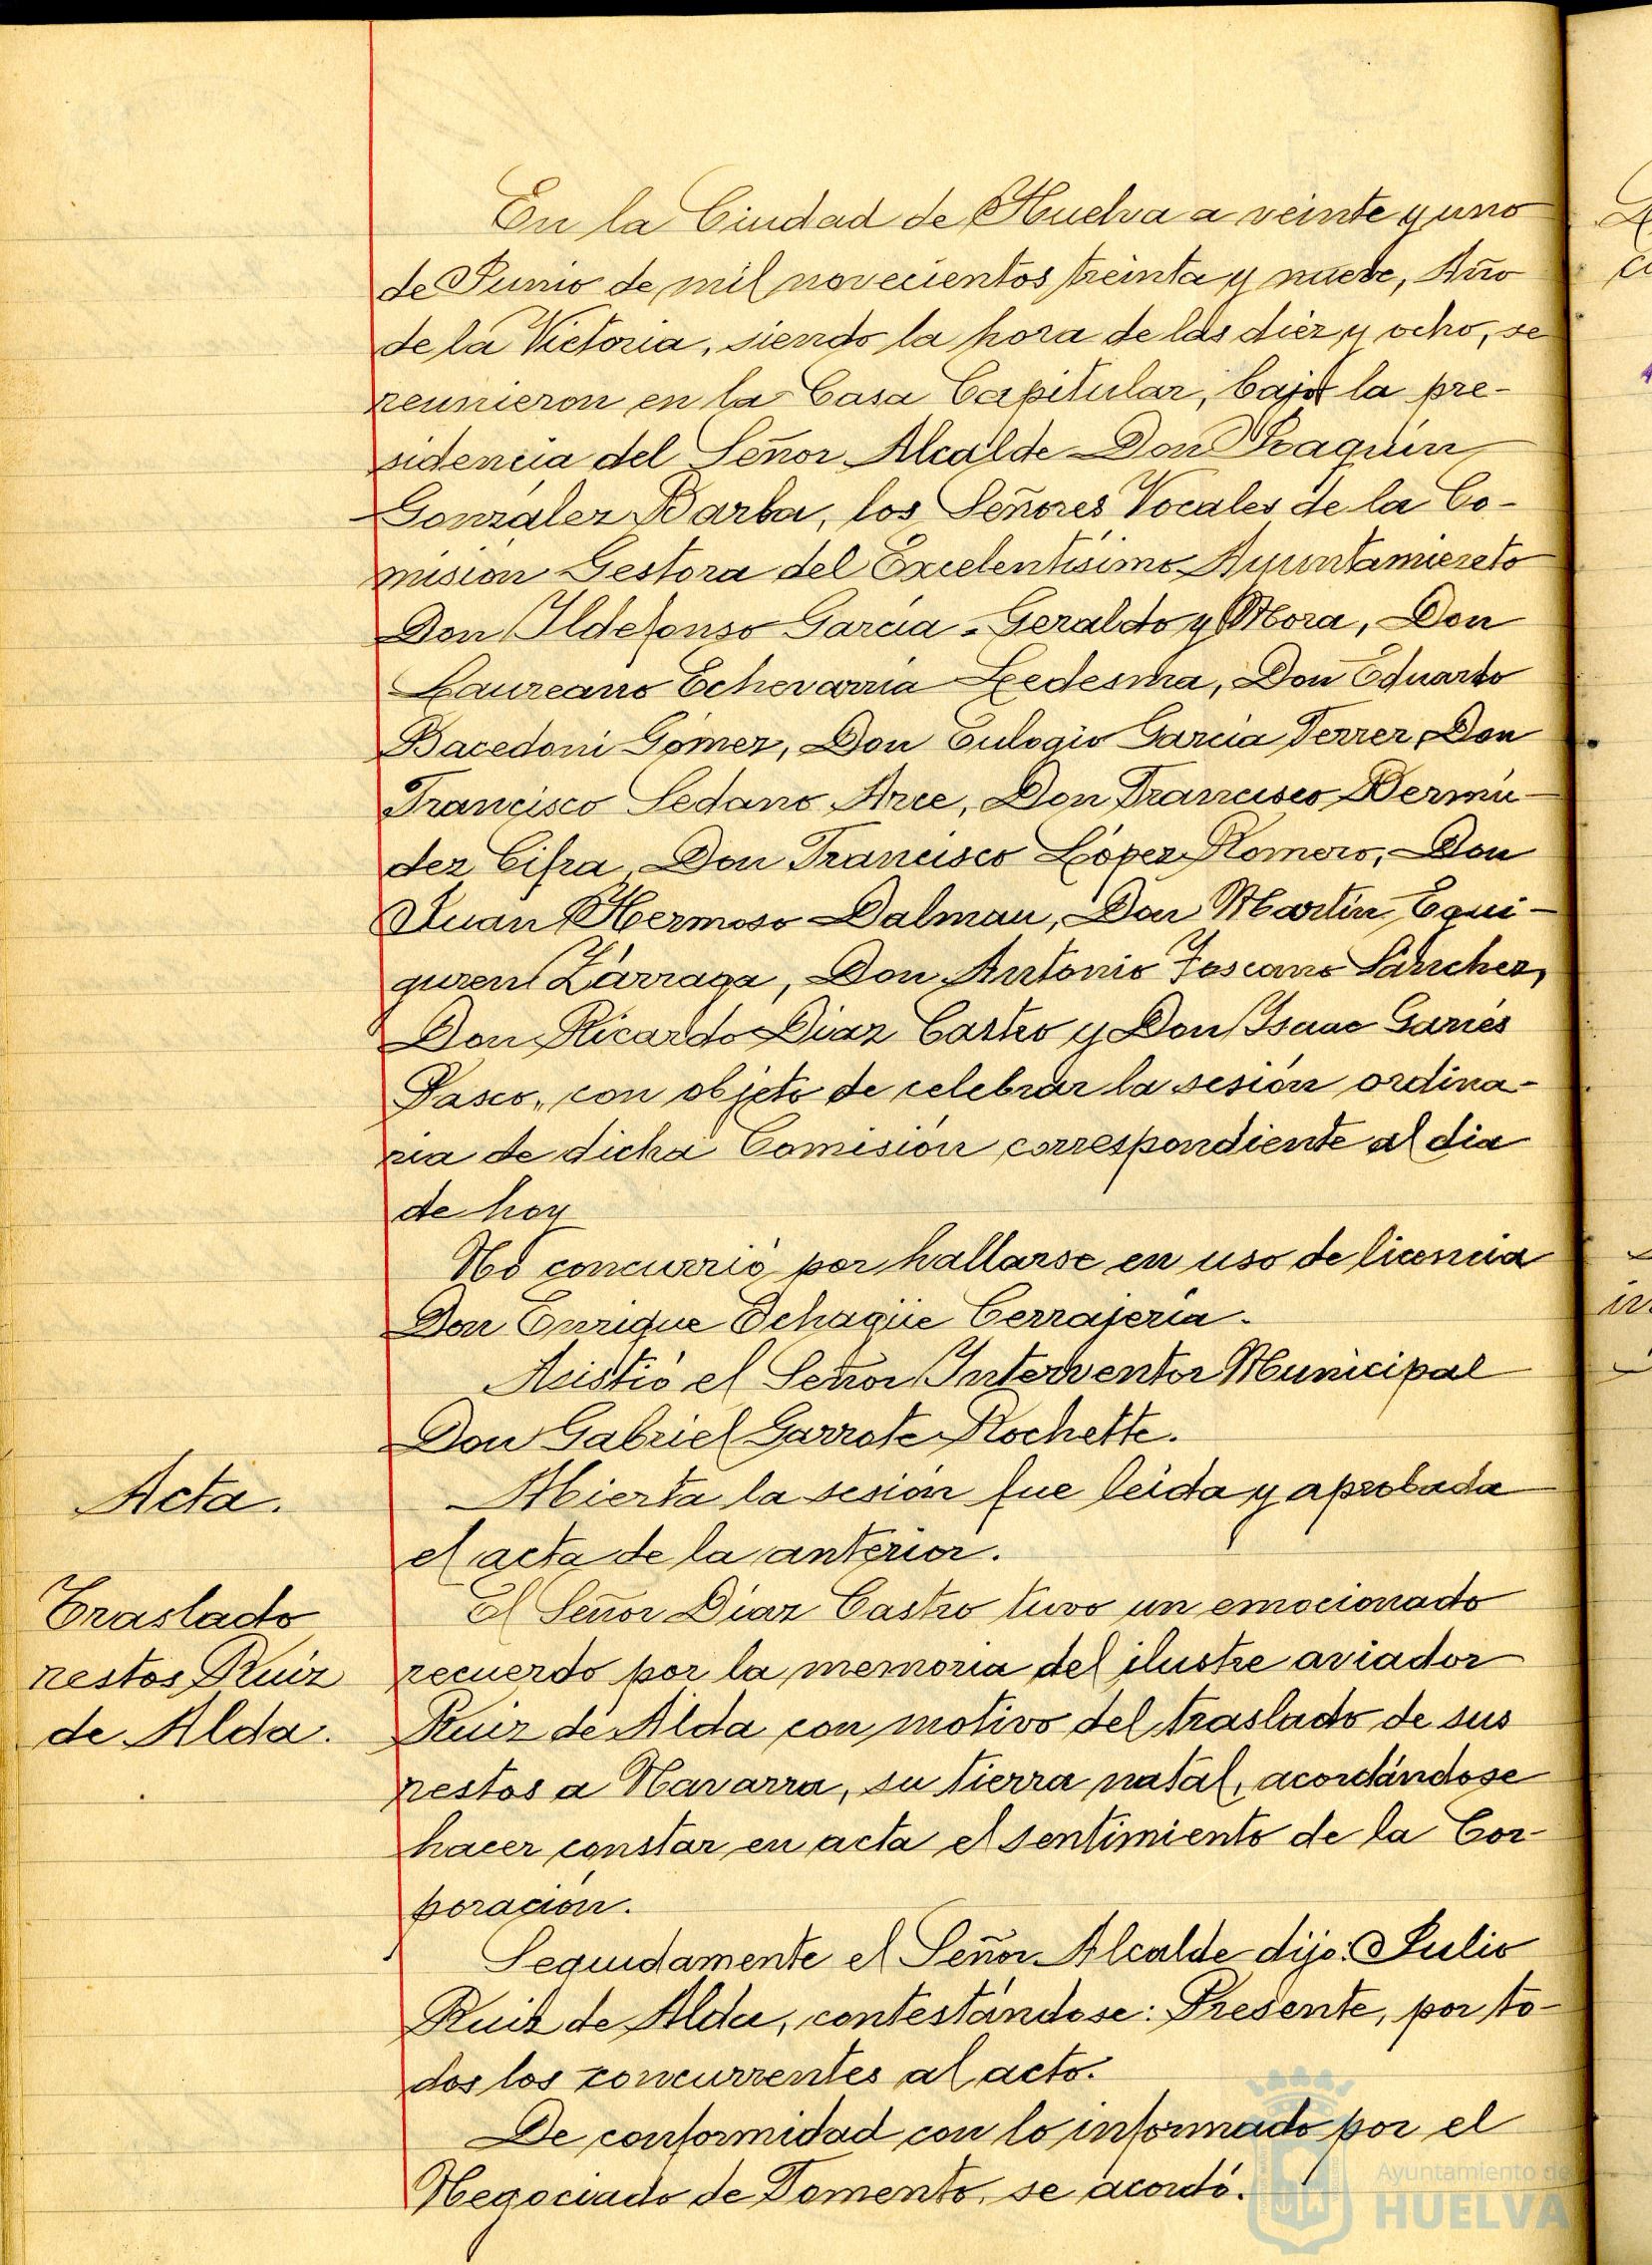 En la Ciudad de Huelva a veinte y uno
de Junio de mil novecientos treinta y nueve, Año
de la Victoria, siendo la hora de las diez y ocho, se
reunieron en la Casa Capitular, bajo la pre-
sidencia del Señor Alcalde Don Joaquin
González Barba, los Señores Vocales de la Co-
misión Gestora del Excelentísimo Ayuntamiento
Don Ildefonso Garcia-Geraldo y Mora, Don
Laureano Echevarria Ledesma, Don Eduardo
Bacedoni Gómez, Don Eulogio Garcia Ferrer, Don
Francisco Sedano Arce, Don Francisco Bermú-
dez Cifra, Don Francisco López Romero, Don
Juan Hermoso Dalmau, Don Martin Egui-
guren Zárraga, Don Antonio Toscano Sánchez,
Don Ricardo Diaz Castro y Don Isaac Garcés
Pasco, con objeto de celebrar la sesión ordina-
ria de dicha Comisión correspondiente al dia
de hoy
No concurrió por hallarse en uso de licencia
Don Enrique Echagüe Cerrajería.
Asistió el Señor Interventor Municipal
Don Gabriel Garrote Rochette.
Acta.
Abierta la sesión fue leida y aprobada
el acta de la anterior.
Traslado
restos Ruiz
de Alda.
El Señor Díaz Castro tuvo un emocionado
recuerdo por la memoria del ilustre aviador
Ruiz de Alda con motivo del traslado de sus
restos a Navarra, su tierra natal, acordándose
hacer constar en acta el sentimiento de la Cor-
poración.
Seguidamente el Señor Alcalde dijo: Julio
Ruiz de Alda, contestándose: Presente, por to-
dos los concurrentes al acto.
De conformidad con lo informado por el
Negociado de Fomento, se acordó.
Ayuntamiento de
HUELVA